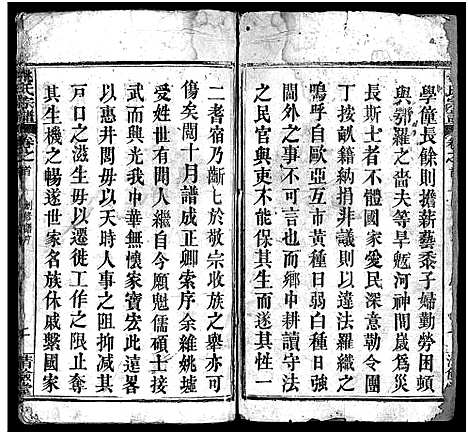 學僮長餘則擔薪藝黍子婦勤勞困頓
與鄂羅之嗇夫等旱魃河神間歲爲災
長斯土者不體國家愛民深意往往計
丁按畝籍納捐非議則以違法羅織之
閫外之事不可言也而鄉中耕讀守法
嗚呼自歐亞互市黄種日弱白種日橫
之民官不能保官不能保其生性一
二耆宿乃斷七於敬宗收族之舉亦可
傷矣閏十月譜成正卿索序余維姚墟
受姓世有聞人繼自今願儁儒碩士接
武而興光我中華無懷家寶宏此遠畧
以惠井閭毋以天時人事之阻抑減
戶口之滋生毋以遷徙工作之限止奪
其生機之暢遂世家名族休戚繫國家
卷之首
清馥堂